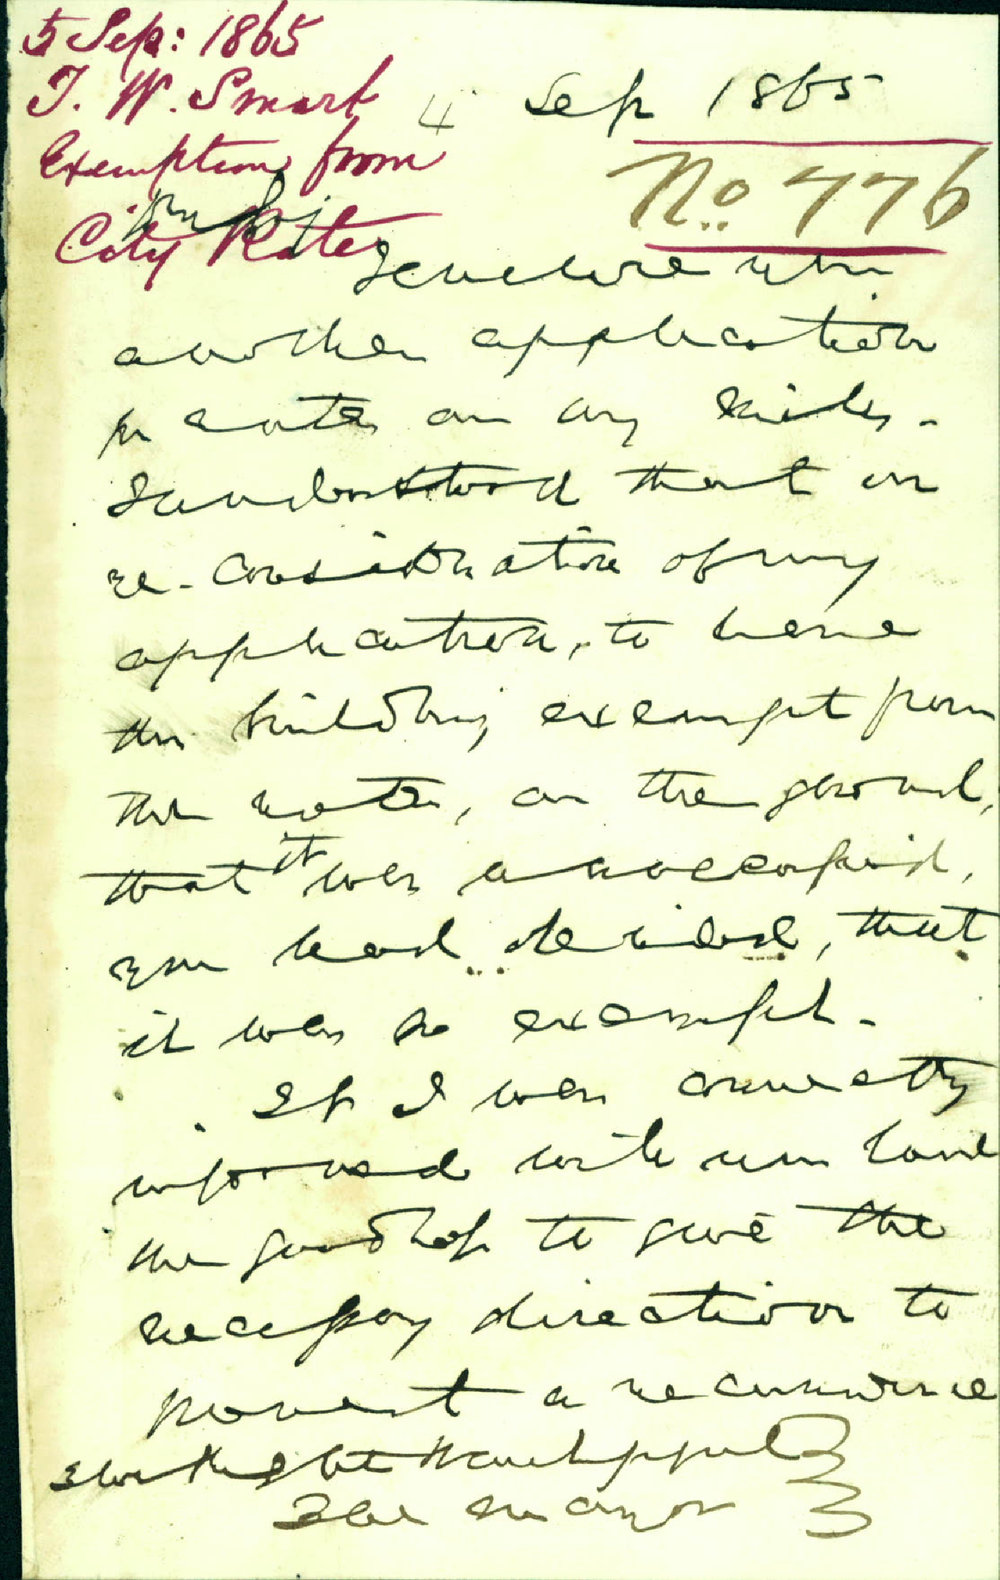 5 Sep: 1865
T. W. Smart
Exemption from
City Rates
4 Sep 1865
No. 776
My Dr Sir
I enclose you
another application
for rates on my
I understood that on
re-consideration of my
application, to have
the building exempt from
the rates, on the ground,
that it was unoccupied,
you had decided, that
it was so exempt.
If I was correctly
informed will you have
the goodness to give the
necessary direction to
prevent a recurrence
The Mayor